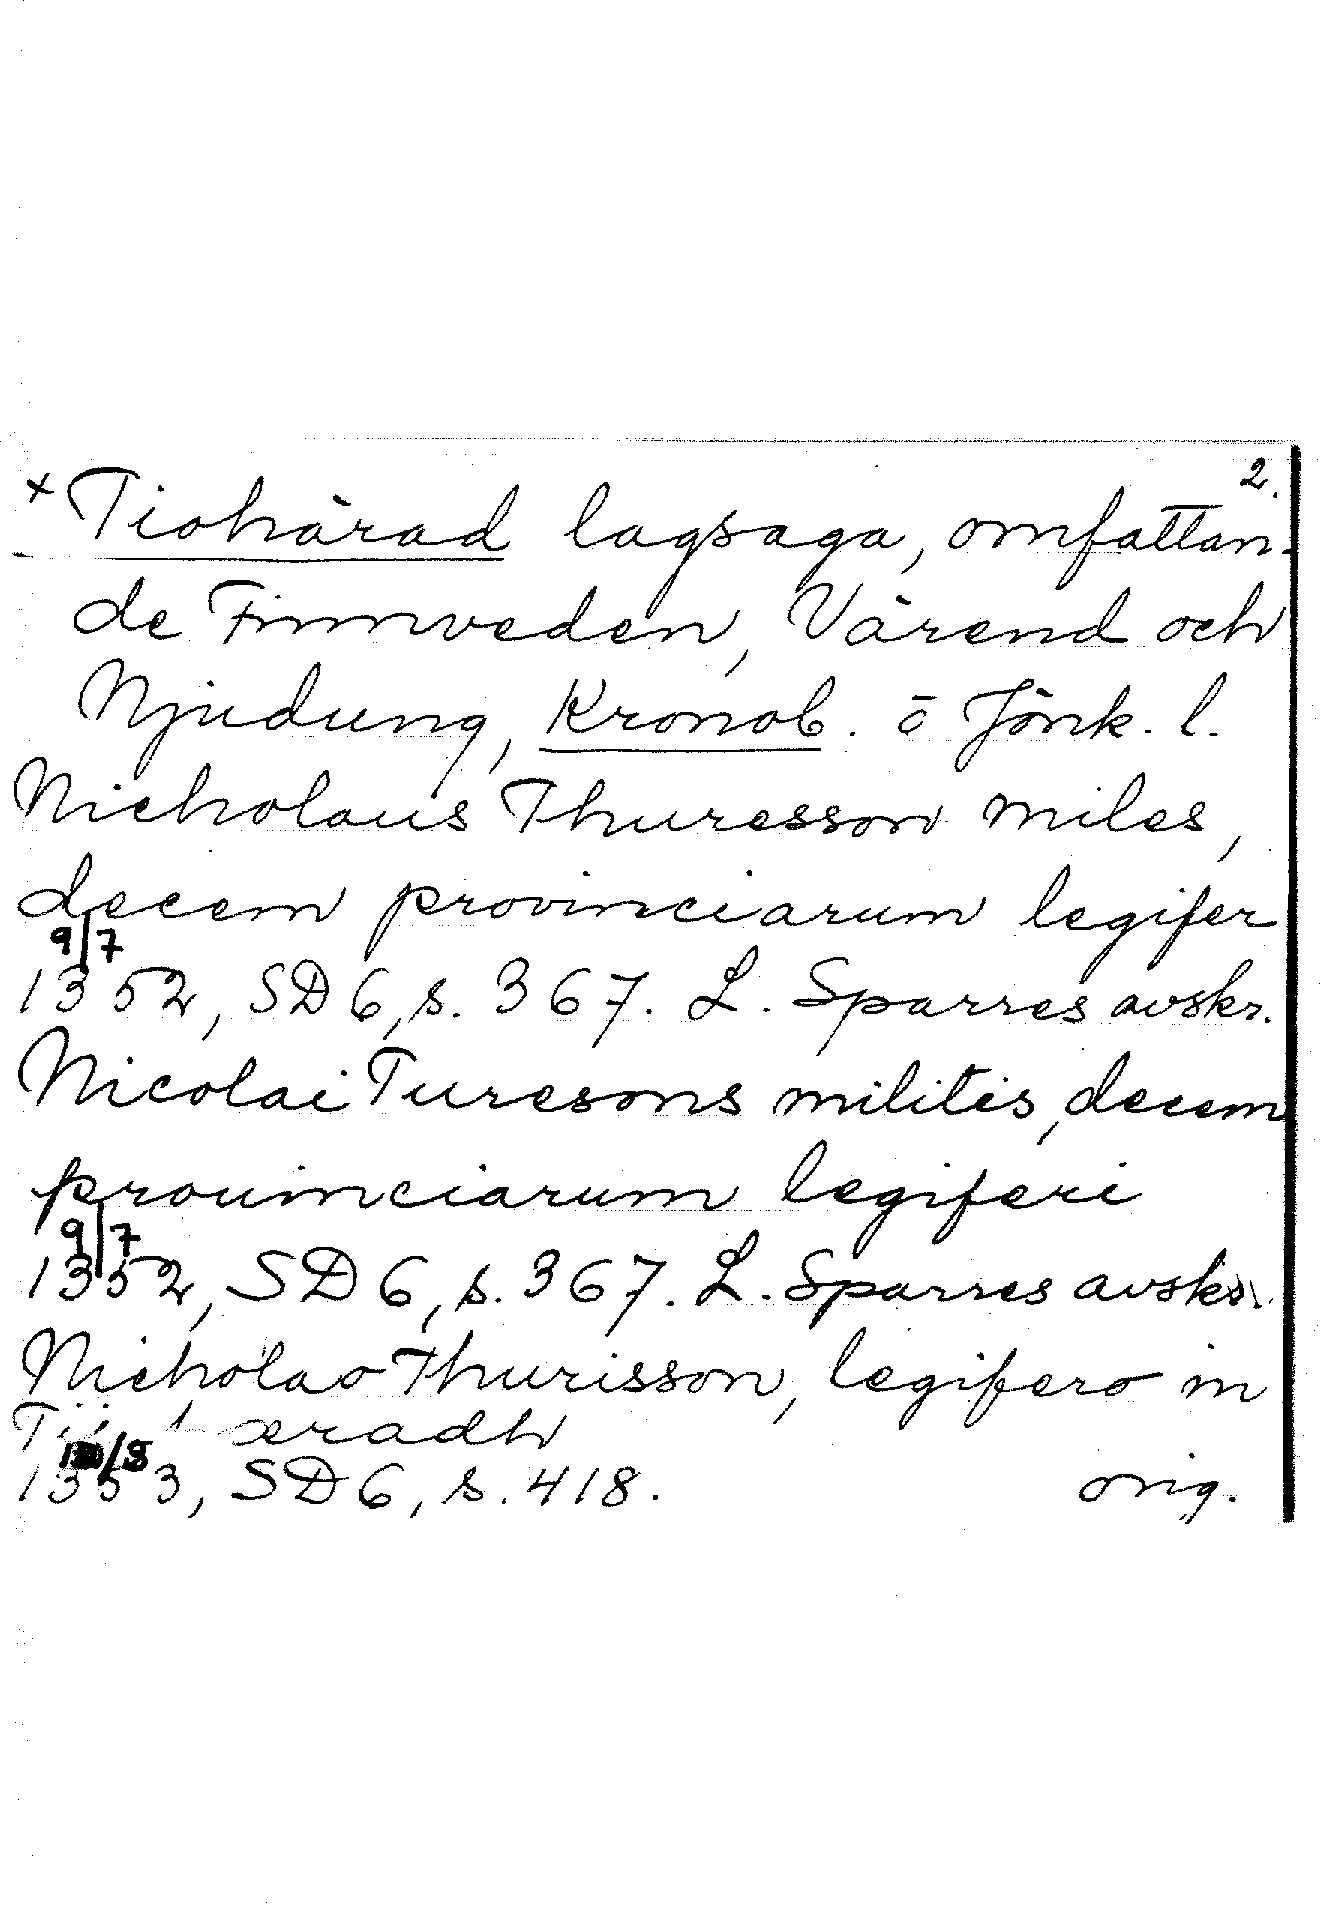 2.
× Tiohärad lagsaga, omfattan-
de Finnveden, Värend och
Njudung, Kronob. o Jönk. l.
Nicholaus Thuresson miles,
decem provinciarum legifer
9/7
1352, SD 6, s. 367. L. Sparres avskr.
Nicolai Turesons militis, decem
prouinciarum legiferi
9/7
1352, SD 6, s. 367. L. Sparres avskr.
Nicholao Thurisson, legifero in
æradh
1353, SD 6, s. 418. orig.